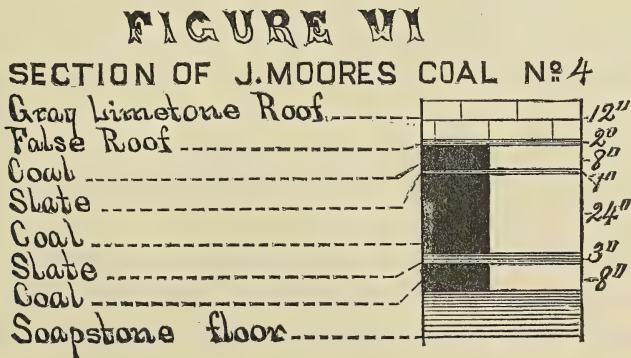 FIGURE VI
SECTION OF J.MOORES COAL Nº 4
Gray Limetone Roof 12"
False Roof 2"
Coal 8"
Slate 1"
Coal 24"
Slate 3"
Coal 8"
Soapstone floor